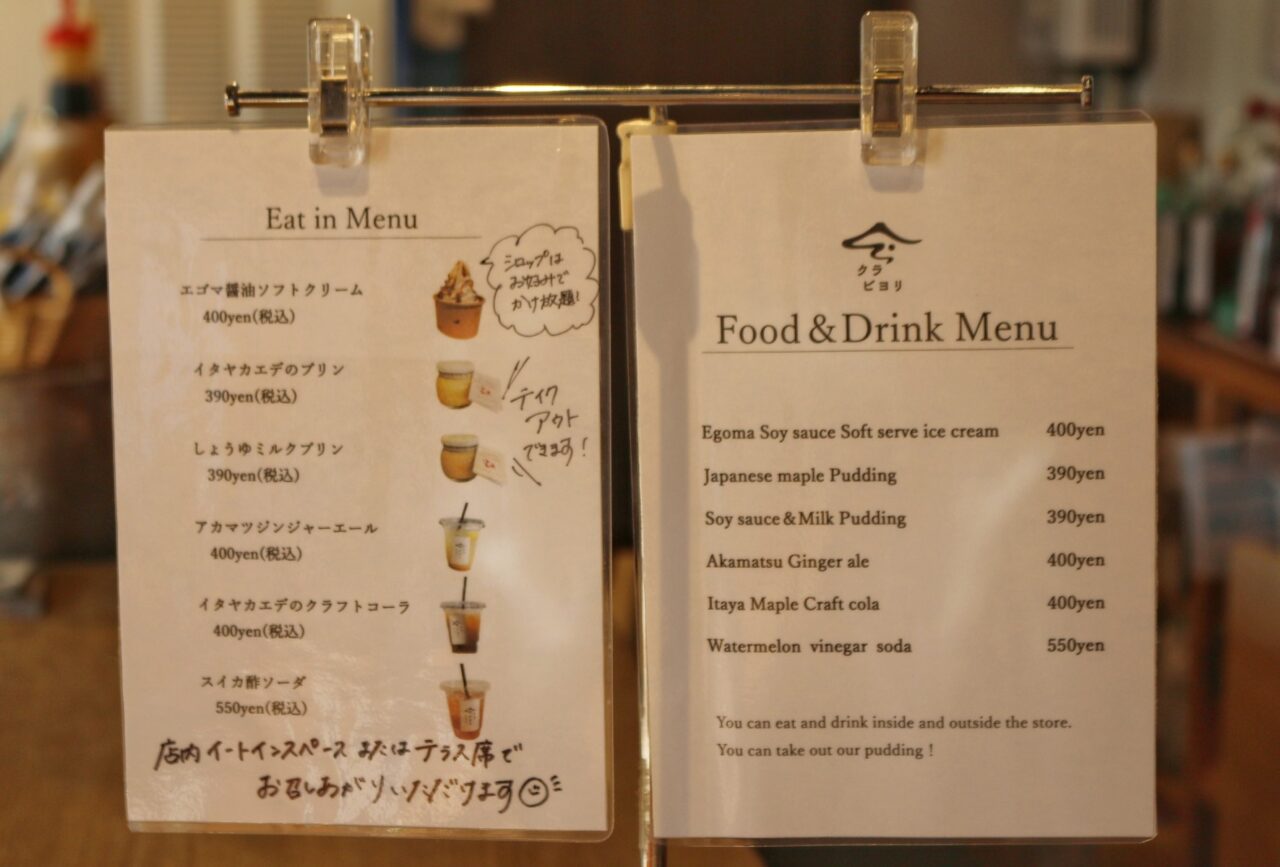 Eat in Menu
エゴマ醤油ソフトクリーム
400yen(税込)
シロップは
お好みで
かけ放題!
イタヤカエデのプリン
390yen(税込)
テイク
アウト
できます!
しょうゆミルクプリン
390yen(税込)
アカマツジンジャーエール
400yen(税込)
イタヤカエデのクラフトコーラ
400yen(税込)
スイカ酢ソーダ
550yen(税込)
店内イートインスペースまたはテラス席で
お召しあがりいただけます
クラ
ビヨリ
Food & Drink Menu
Egoma Soy sauce Soft serve ice cream 400yen
Japanese maple Pudding 390yen
Soy sauce & Milk Pudding 390yen
Akamatsu Ginger ale 400yen
Itaya Maple Craft cola 400yen
Watermelon vinegar soda 550yen
You can eat and drink inside and outside the store.
You can take out our pudding !